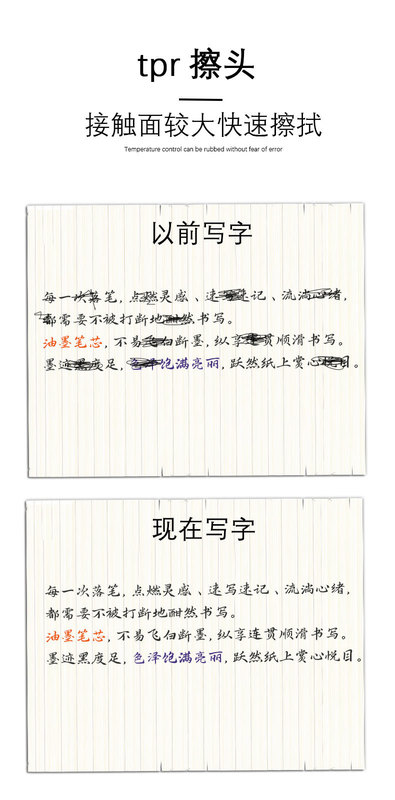 tpr 擦头
接触面较大快速擦拭
Temperature control can be rubbed without fear of error
以前写字
每一次落笔，点燃灵感、速写速记、流淌心绪，
都需要不被打断地酣然书写。
油墨笔芯，不易飞白断墨，纵享连贯顺滑书写。
墨迹黑度足，色泽饱满亮丽，跃然纸上赏心悦目。
现在写字
每一次落笔，点燃灵感、速写速记、流淌心绪，
都需要不被打断地酣然书写。
油墨笔芯，不易飞白断墨，纵享连贯顺滑书写。
墨迹黑度足，色泽饱满亮丽，跃然纸上赏心悦目。